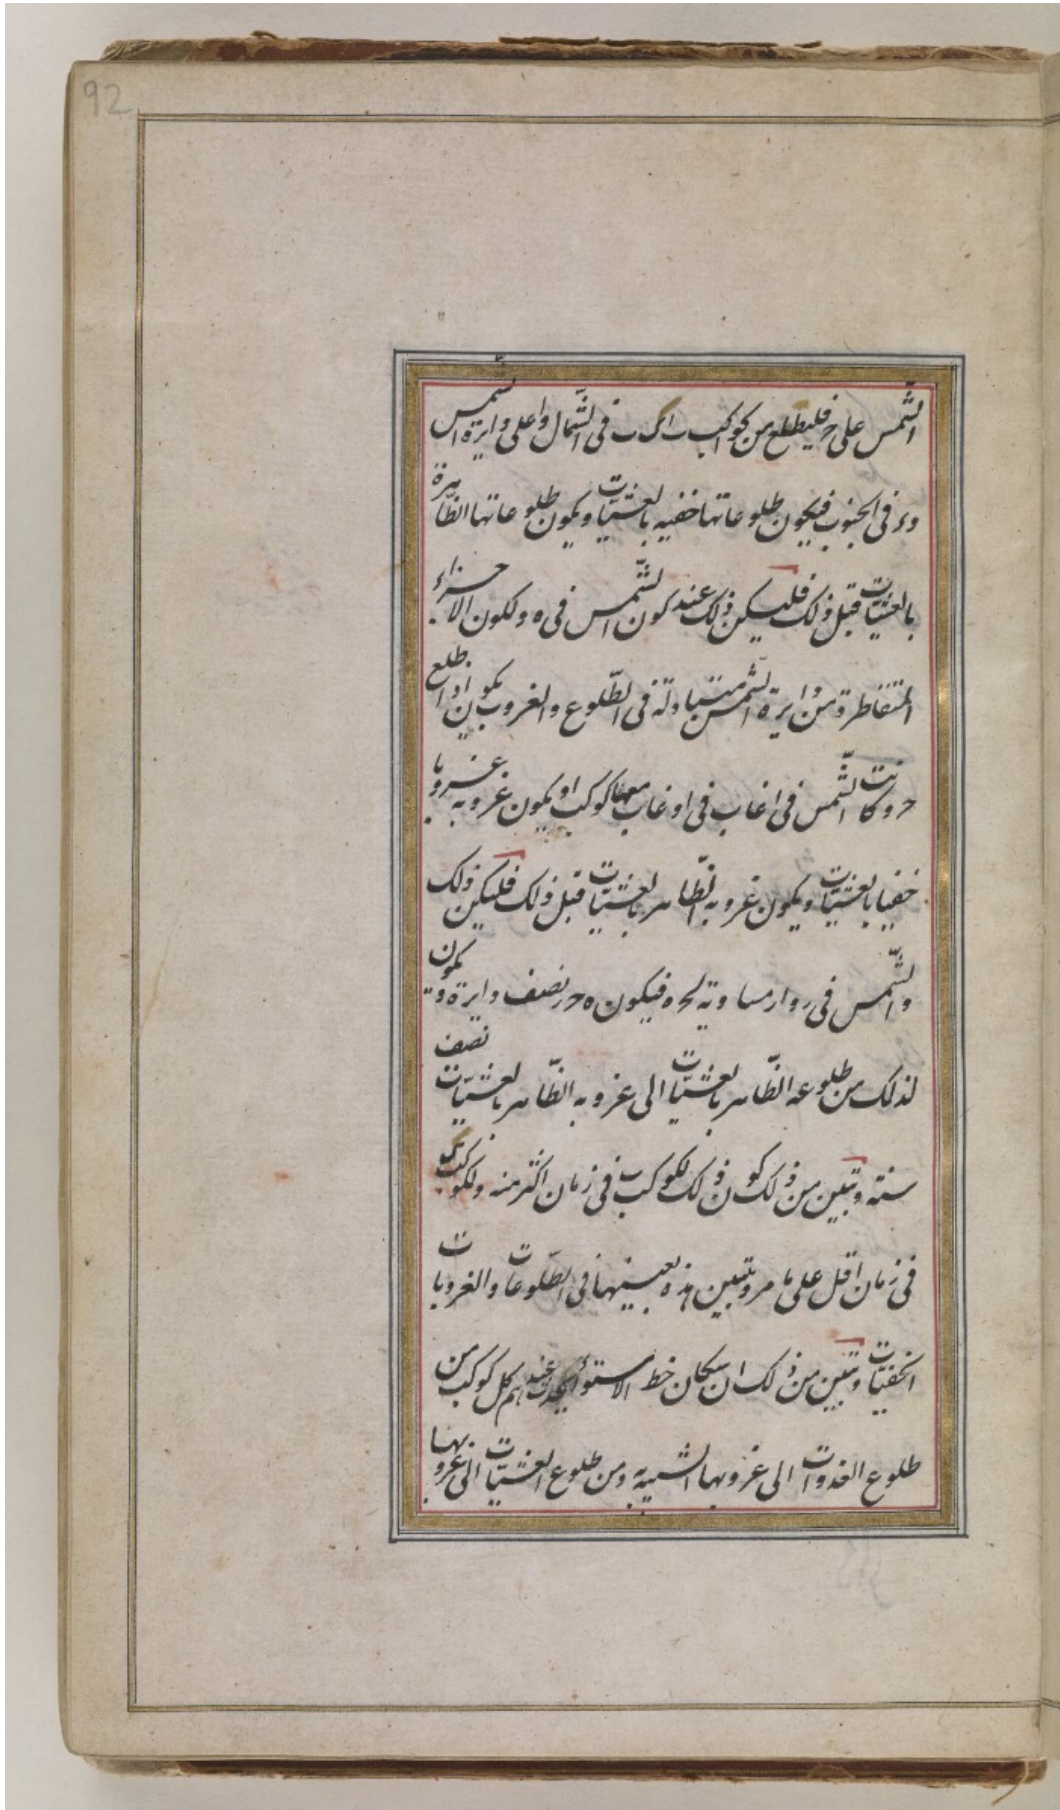 92
الشّمس على ح فليطلع من كواكب ا ب في الشّمال واعلى دايرة الشّمس
وء في الجنوب فيكون طلوعاتها خفيه بالعشيّات ويكون طلوعاتها الظّاهرة
بالعشيّات قبل ذلك فليكن ذلك عند كون الشّمس في ه ولكون الاجزاء
المتقاطرة من دايرة الشّمس متبادلة في الطّلوع والغروب يكون اذا طلع
ح وكانت الشّمس في ا غاب في او غاب معها كوكب او يكون غروبه غروبا
خفيا بالعشيّات ويكون غروبه الظّاهر بالعشيّات قبل ذلك فليكن ذلك
والشّمس في ر وار مساوية لحه فيكون ه ح ر نصف دايرة ويكون
لذلك من طلوعه الظّاهر بالعشيّات الى غروبه الظّاهر بالعشيّات نصف
سنة وتبين من ذلك كون ذلك لكوكب ب في زمان اكثر منه ولكوكب
في زمان اقل على ما مر وبتبين هذه بعينها في الطّلوعات والغروبات
الخفيّات وتبين من ذلك ان سكان خط الاستوأ عندهم كل كوكب من
طلوع الغدوات الى غروبها الشبيه ومن طلوع العشيّات الى غروبها